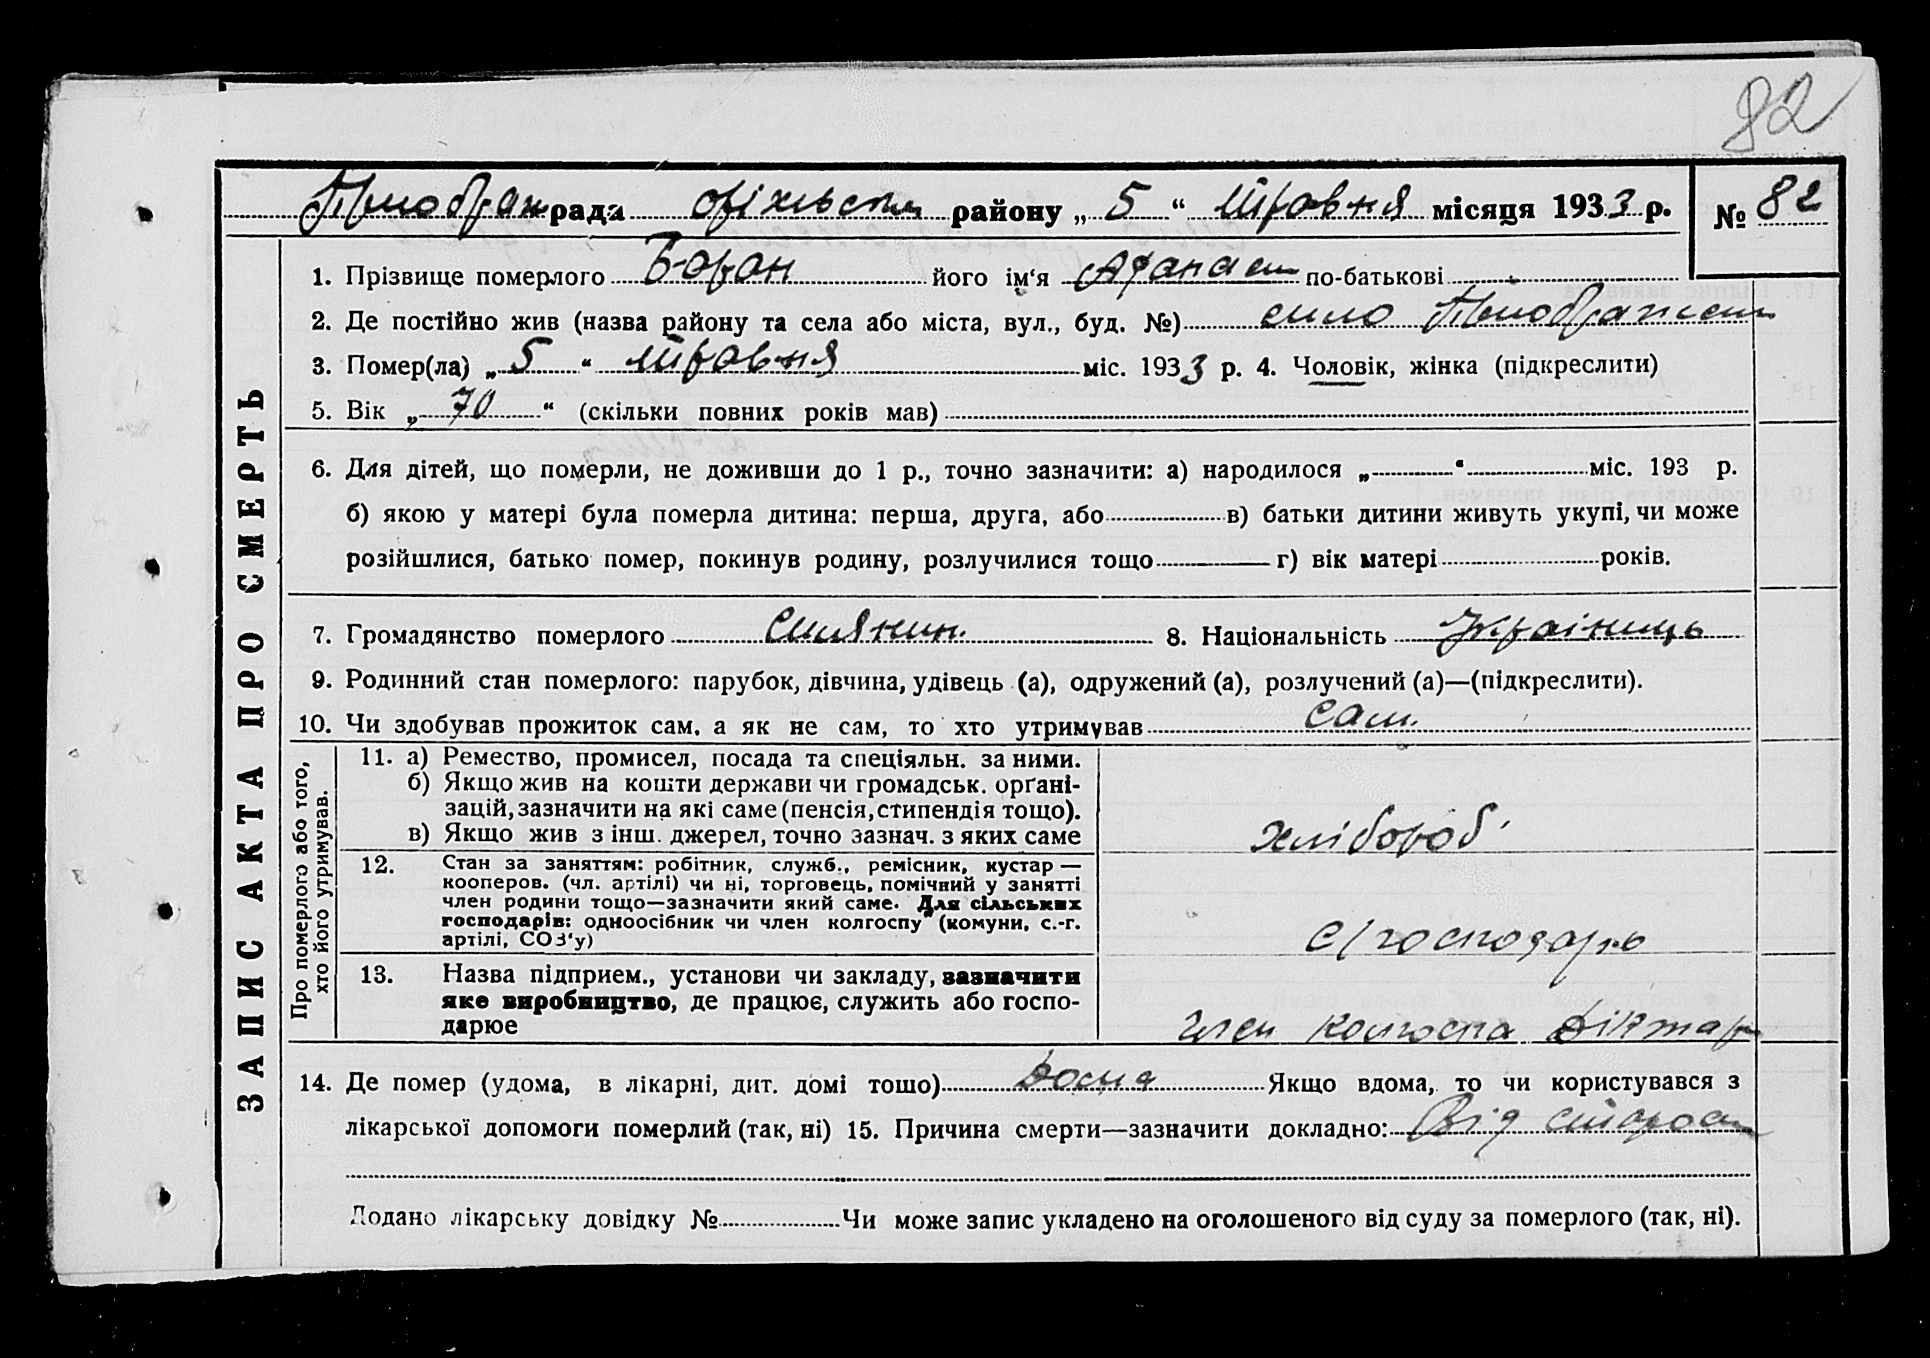 82
Преображ рада Оріхівськ району „ 5 “ Травня місяця 1933 р. № 82
ЗАПИС АКТА ПРО СМЕРТЬ
1. Прізвище померлого Баран його ім‘я Афанаси по-батькові
2. Де постійно жив (назва району та села або міста, вул., буд. №) село Преображенк
3. Помер(ла) „ 5 “ Травня міс. 1933 р. 4. Чоловік, жінка (підкреслити)
5. Вік „ 70 “ (скільки повних років мав)
6. Для дітей, що померли, не доживши до 1 р., точно зазначити: а) народилося „ “ міс. 193 р.
б) якою у матері була померла дитина: перша, друга, або в) батьки дитини живуть укупі, чи може
розійшлися, батько помер, покинув родину, розлучилися тощо г) вік матері років.
7. Громадянство померлого Силянин. 8. Національність Україниць
9. Родинний стан померлого: парубок, дівчина, удівець (а), одружений (а), розлучений (а)—(підкреслити).
10. Чи здобував прожиток сам, а як не сам, то хто утримував сам.
Про померлого або того,
хто його утримував.
11. а) Ремество, промисел, посада та спеціяльн. за ними.
б) Якщо жив на кошти держави чи громадськ. орґані-
зацій, зазначити на які саме (пенсія, стипендія тощо).
в) Якщо жив з інш. джерел, точно зазнач. з яких саме
хлібороб
12. Стан за заняттям: робітник, служб., ремісник, кустар —
кооперов. (чл. артілі) чи ні, торговець, помічний у занятті
член родини тощо—зазначити який саме. Для сільських
господарів: одноосібник чи член колгоспу (комуни, с.-г.
артілі, СОЗ‘у)
с/господарь
13. Назва підприєм., установи чи закладу, зазначити
яке виробництво, де працює, служить або госпо-
дарює
член колгоспа
14. Де помер (удома, в лікарні, дит. домі тошо) дома Якщо вдома, то чи користувався з
лікарської допомоги померлий (так, ні) 15. Причина смерти—зазначити докладно: Від старост
Додано лікарську довідку № Чи може запис укладено на оголошеного від суду за померлого (так, ні).